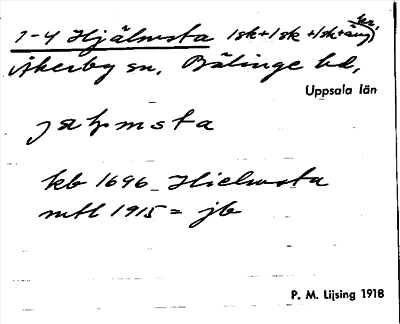 1-4 Hjälmsta 1sk+1sk+1sk+äng
Åkerby sn, Bälinge hd,
Uppsala län
jalpmsta
kb 1696 Hielmsta
mtl 1915 = jb
P. M. Liljsing 1918